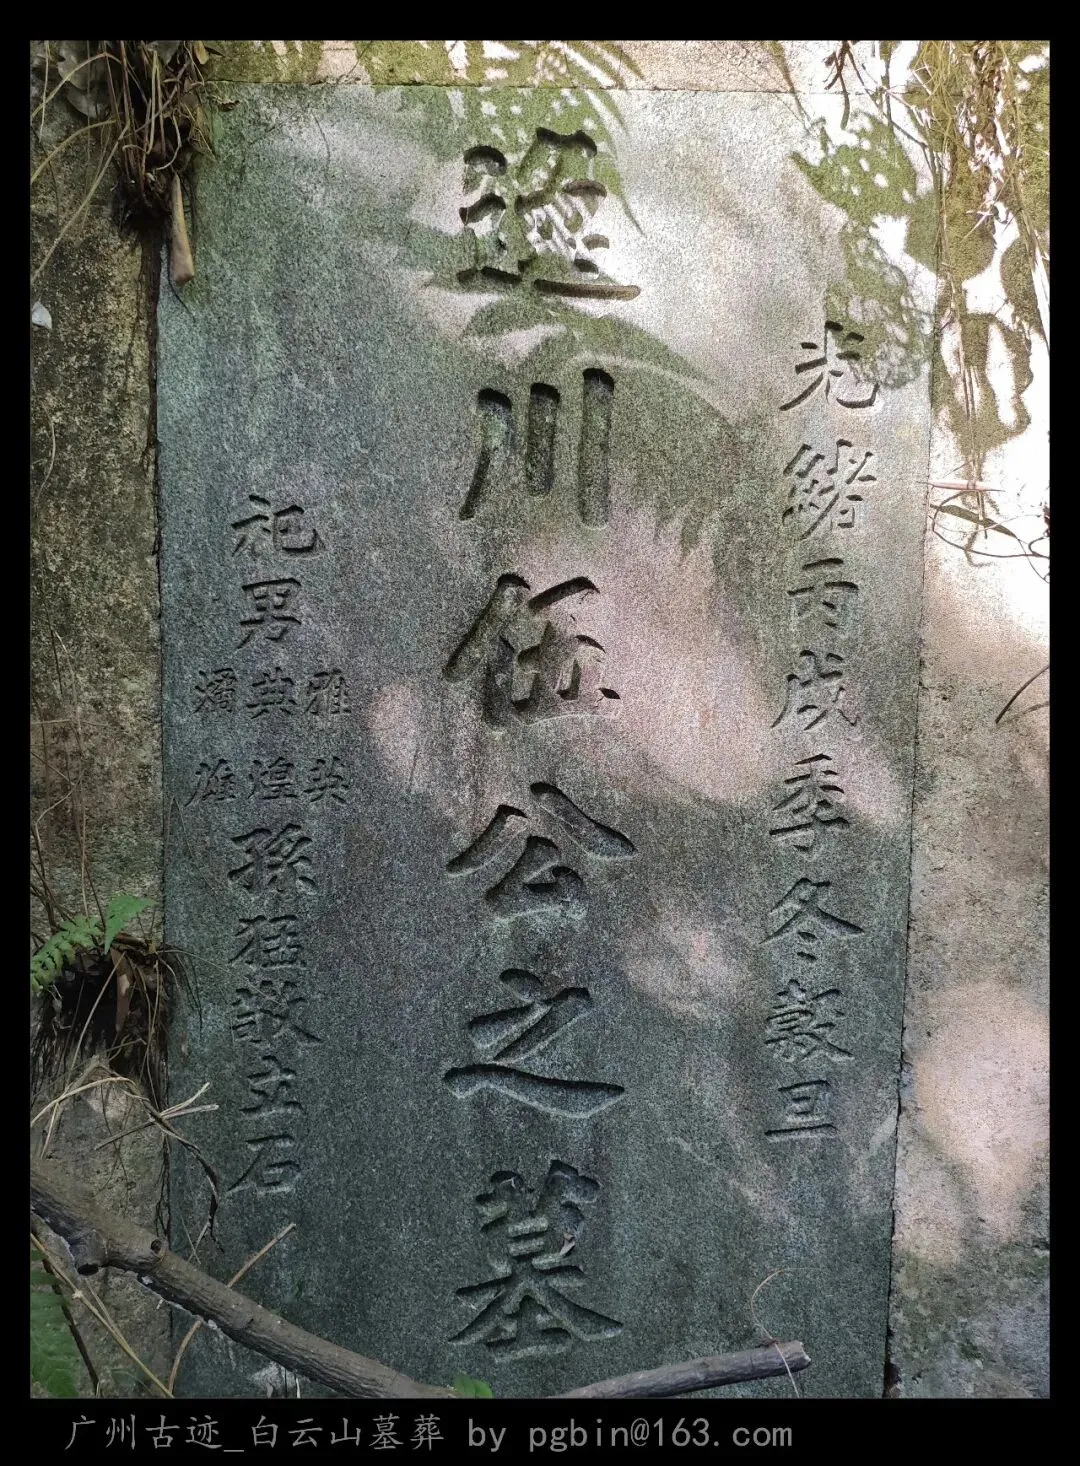 光緒丙戌季冬穀旦
川伍公之墓
祀男
雅英
煌
雄
孫猛敬立石
广州古迹_白云山墓葬 by pgbin@163.com